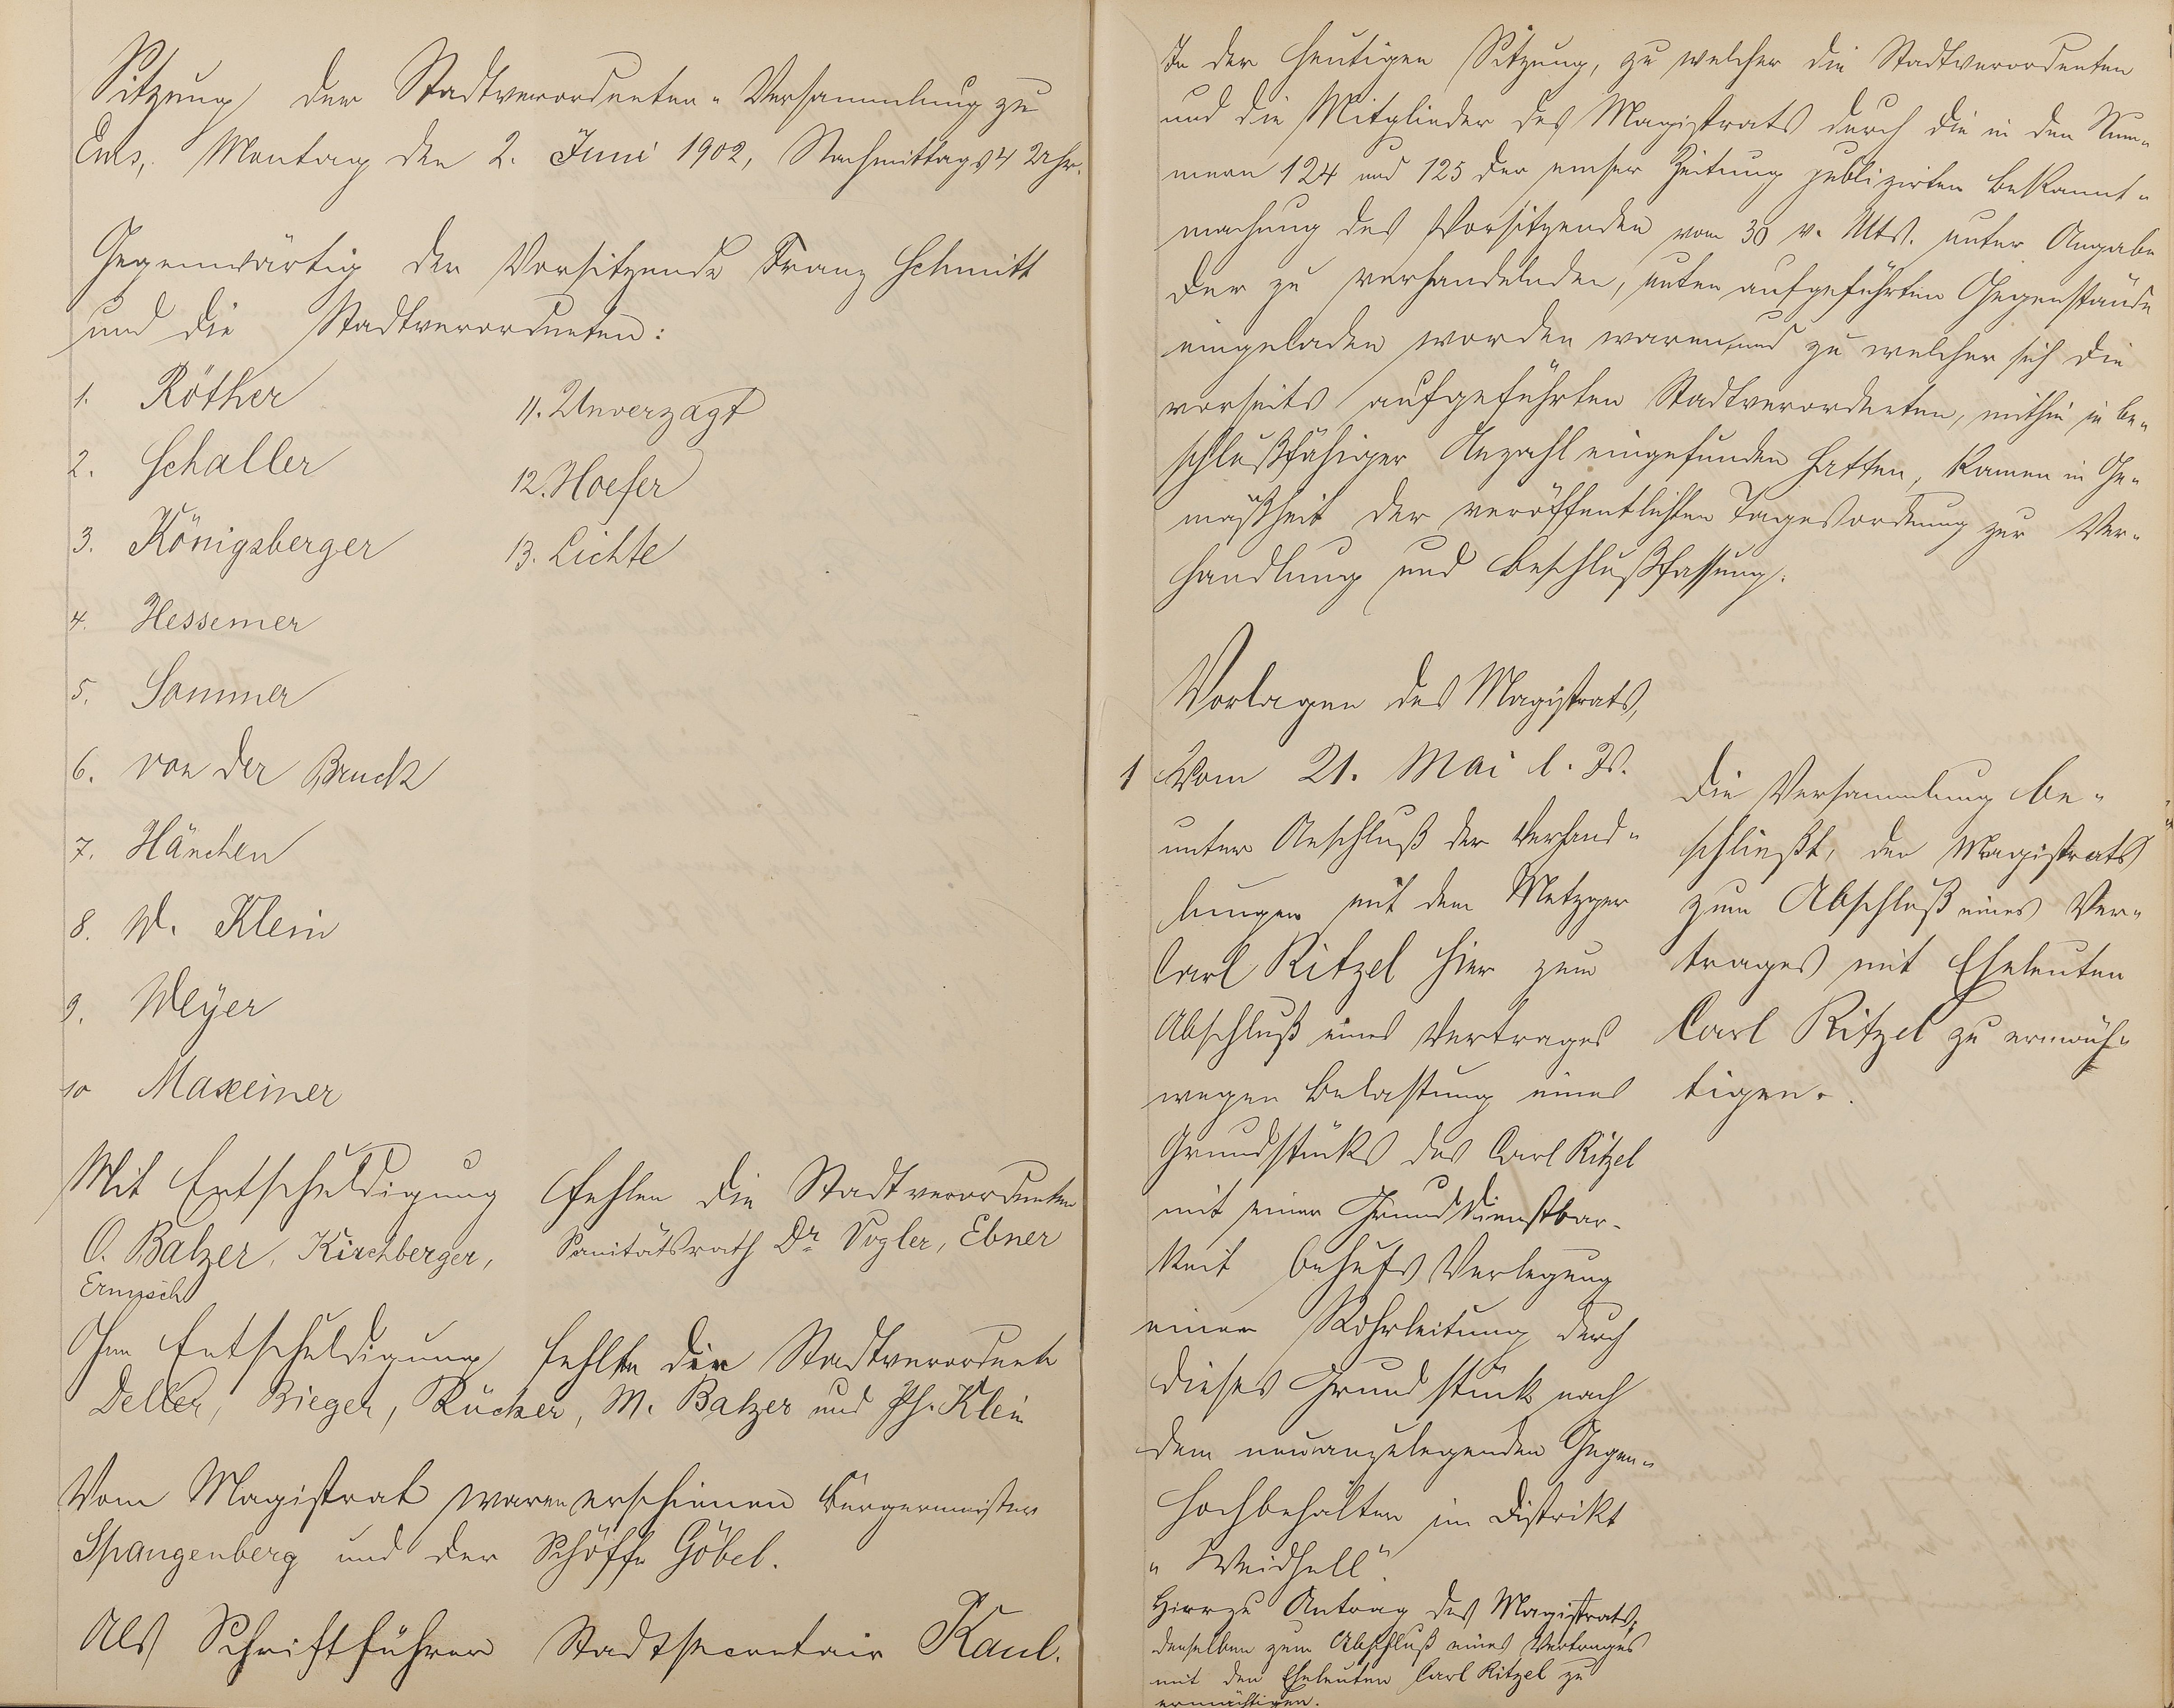 Sitzung der Stadtverordneten-Versammlung zu
Ems, Montag den 2. Juni 1902, Nachmittags 4 Uhr.
Gegenwärtig der Vorsitzende Franz Schmitt
und die Stadtverordneten:
1. Röther
2. Schaller
3. Königsberger
4. Hessemer
5. Sommer
6. von der Bruck
7. Hänchen
8. W. Klein
9. Meyer
10 Maxeiner
11. Unverzagt
12. Hoefer
13. Lichte
Mit Entschuldigung fehlen die Stadtverordneten
O. Balzer, Kirchberger, Sanitätsrath Dr. Vogler, Ebner
Ermisch
Ohne Entschuldigung fehlten die Stadtverordnete
Deller, Bieger, Rücker, M. Balzer und Ph. Klein
Vom Magistrat waren erschienen Bürgermeister
Spangenberg und der Schöffe Göbel.
Als Schriftführer Stadtsecretair Kaul.
In der heutigen Sitzung, zu welcher die Stadtverordneten
und die Mitglieder des Magistrats durch die in den Num-
mern 124 und 125 der emser Zeitung publizirten Bekannt-
machung des Vorsitzenden vom 30 v. Mts. unter Angabe
der zu verhandelnden, unten aufgeführten Gegenstände
eingeladen worden waren und zu welcher sich die
vorseits aufgeführten Stadtverordneten, mithin in be-
schlußfähiger Anzahl eingefunden hatten, kamen in Ge-
mäßheit der veröffentlichten Tagesordnung zur Ver-
handlung und Beschlußfassung:
Vorlagen des Magistrats,
1 Vom 21. Mai l. Js.
unter Anschluß der Verhand-
lungen mit dem Metzger
Carl Ritzel hier zum
Abschluß eines Vertrages
wegen Belastung eines
Grundstücks des Carl Ritzel
mit einer Grunddienstbar-
keit behufs Verlegung
einer Rohrleitung durch
dieses Grundstück nach
dem neuanzulegenden Gegen-
hochbehälter im Distrikt
"Weidhell".
Hierzu Antrag des Magistrats,
denselben zum Abschluß eines Vertrages
mit den Eheleuten Carl Ritzel zu
ermächtigen.
Die Versammlung be-
schließt, den Magistrats
zum Abschluß eines Ver-
trages mit Eheleuten
Carl Ritzel zu ermäch-
tigen.